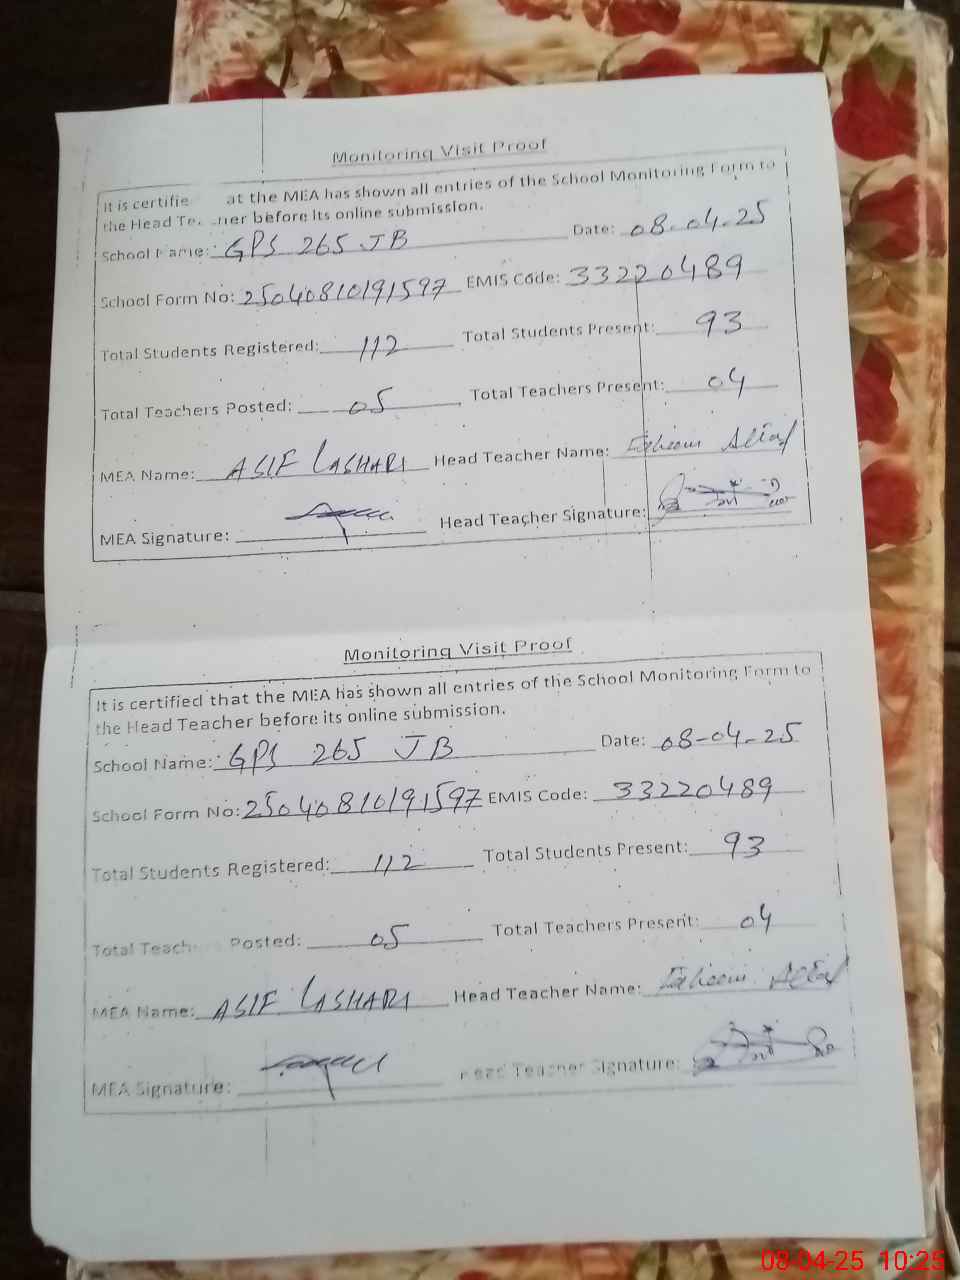 Monitoring Visit Proof
It is certifie at the MEA has shown all entries of the School Monitoring Form to
the Head Te her before its online submission.
School Name: GPS 265 JB Date: 08-04-25
School Form No: 25040810191597 EMIS Code: 33220489
Total Students Registered: 112 Total Students Present: 93
Total Teachers Posted: 05 Total Teachers Present: 04
MEA Name: ASIF LASHARI Head Teacher Name: Faheem Altaf
MEA Signature: Head Teacher Signature:
Monitoring Visit Proof
It is certified that the MEA has shown all entries of the School Monitoring Form to
the Head Teacher before its online submission.
School Name: GPS 265 JB Date: 08-04-25
School Form No: 25040810191597 EMIS Code: 33220489
Total Students Registered: 112 Total Students Present: 93
Total Teach Posted: 05 Total Teachers Present: 04
MEA Name: ASIF LASHARI Head Teacher Name: Faheem Altaf
MEA Signature: Head Teacher Signature:
08-04-25 10:25